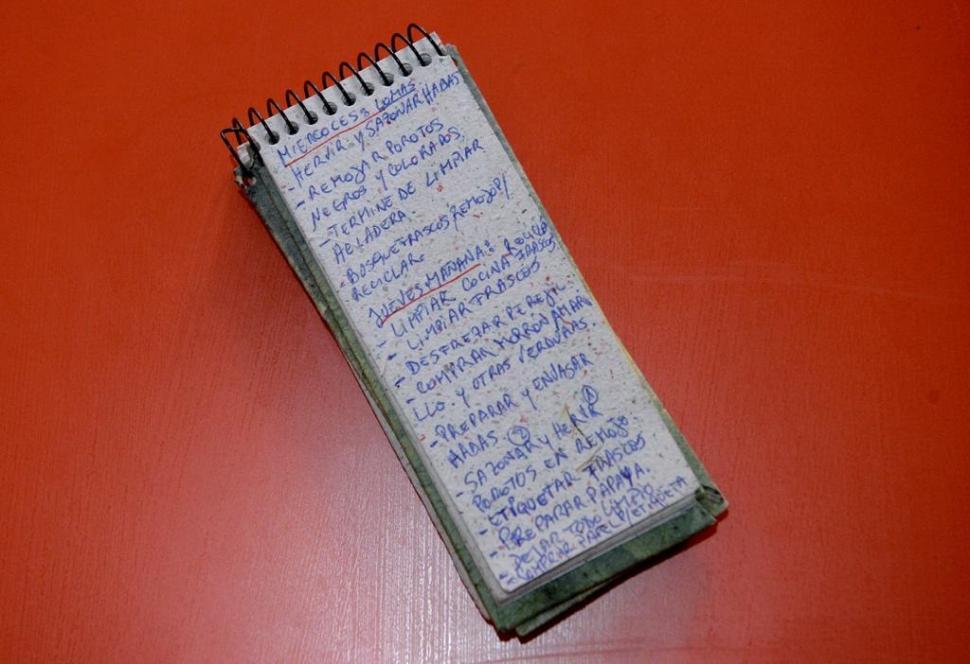 MIERCOLES: LOMAS.
- HERVIR Y SAZONAR HABAS
- REMOJAR POROTOS
NEGROS Y COLORADOS.
- TERMINE DE LIMPIAR
HELADERA.
- BOSQUE FRASCOS REMOJO P/
RECICLAR.
JUEVES MAÑANA:
- LIMPIAR COCINA
- LIMPIAR FRASCOS
- DESFREZAR PEREJIL.
- COMPRAR MORRON AMARI
LLO. Y OTRAS VERDURAS.
- PREPARAR Y ENVASAR
HABAS. ②
- SAZONAR Y HERVIR ①
POROTOS EN REMOJO
- ETIQUETAR FRASCOS
- PREPARAR PAPAYA.
- DEJAR TODO LIMPIO
- COMPRAR PAPEL P/ETIQUETA